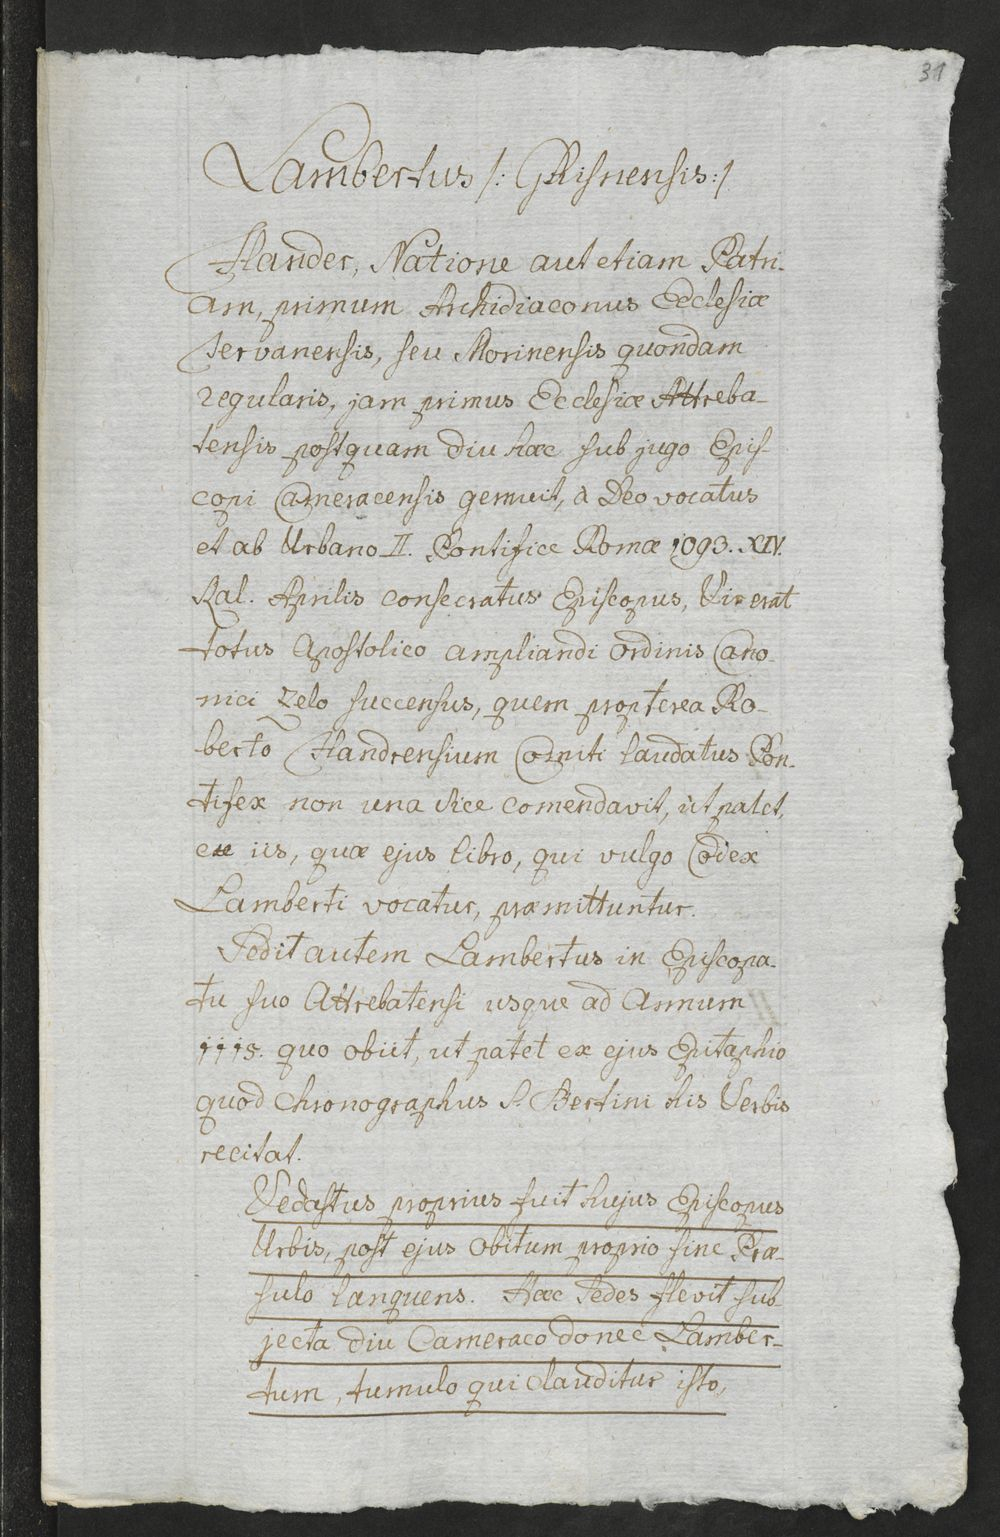 31
Lambertus /: GRisnensis :/
Flander, Natione aut etiam Patri-
am, primum Archidiaconus Ecclesiæ
Tervanensis, seu Morinensis quondam
regularis, jam primus Ecclesiæ Attreba-
tensis postquam diu hæc sub jugo Epis-
copi Cameracensis gemuit, à Deo vocatus
et ab Urbano II. Pontifice Romæ 1093. XIV.
Kal. Aprilis consecratus Episcopus, Vir erat
totus Apostolico ampliandi Ordinis Cano-
nici Zelo succensus, quem propterea Ro-
berto Flandrensium Comiti laudatus Pon-
tifex non una vice comendavit, ut patet,
ex iis, quæ ejus libro, qui vulgo Codex
Lamberti vocatur, præmittuntur.
Sedit autem Lambertus in Episcopa-
tu suo Attrebatensi usque ad Annum
1115. quo obiit, ut patet ex ejus Epitaphio
quod Chronographus S. Bertini his Verbis
recitat.
Vedastus proprius fuit hujus Episcopus
Urbis, post ejus Obitum proprio sine Præ-
sulo languens. Hæc Sedes flevit sub-
jecta diu Cameraco donec Lamber-
tum, tumulo qui clauditur isto,